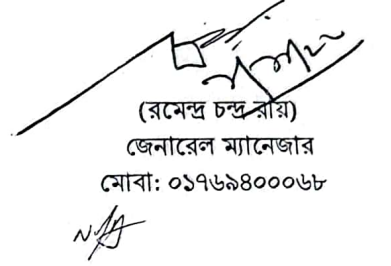 (রমেন্দ্র চন্দ্র রায়)
জেনারেল ম্যানেজার
মোবা: ০১৭৬৯৪০০০৬৮